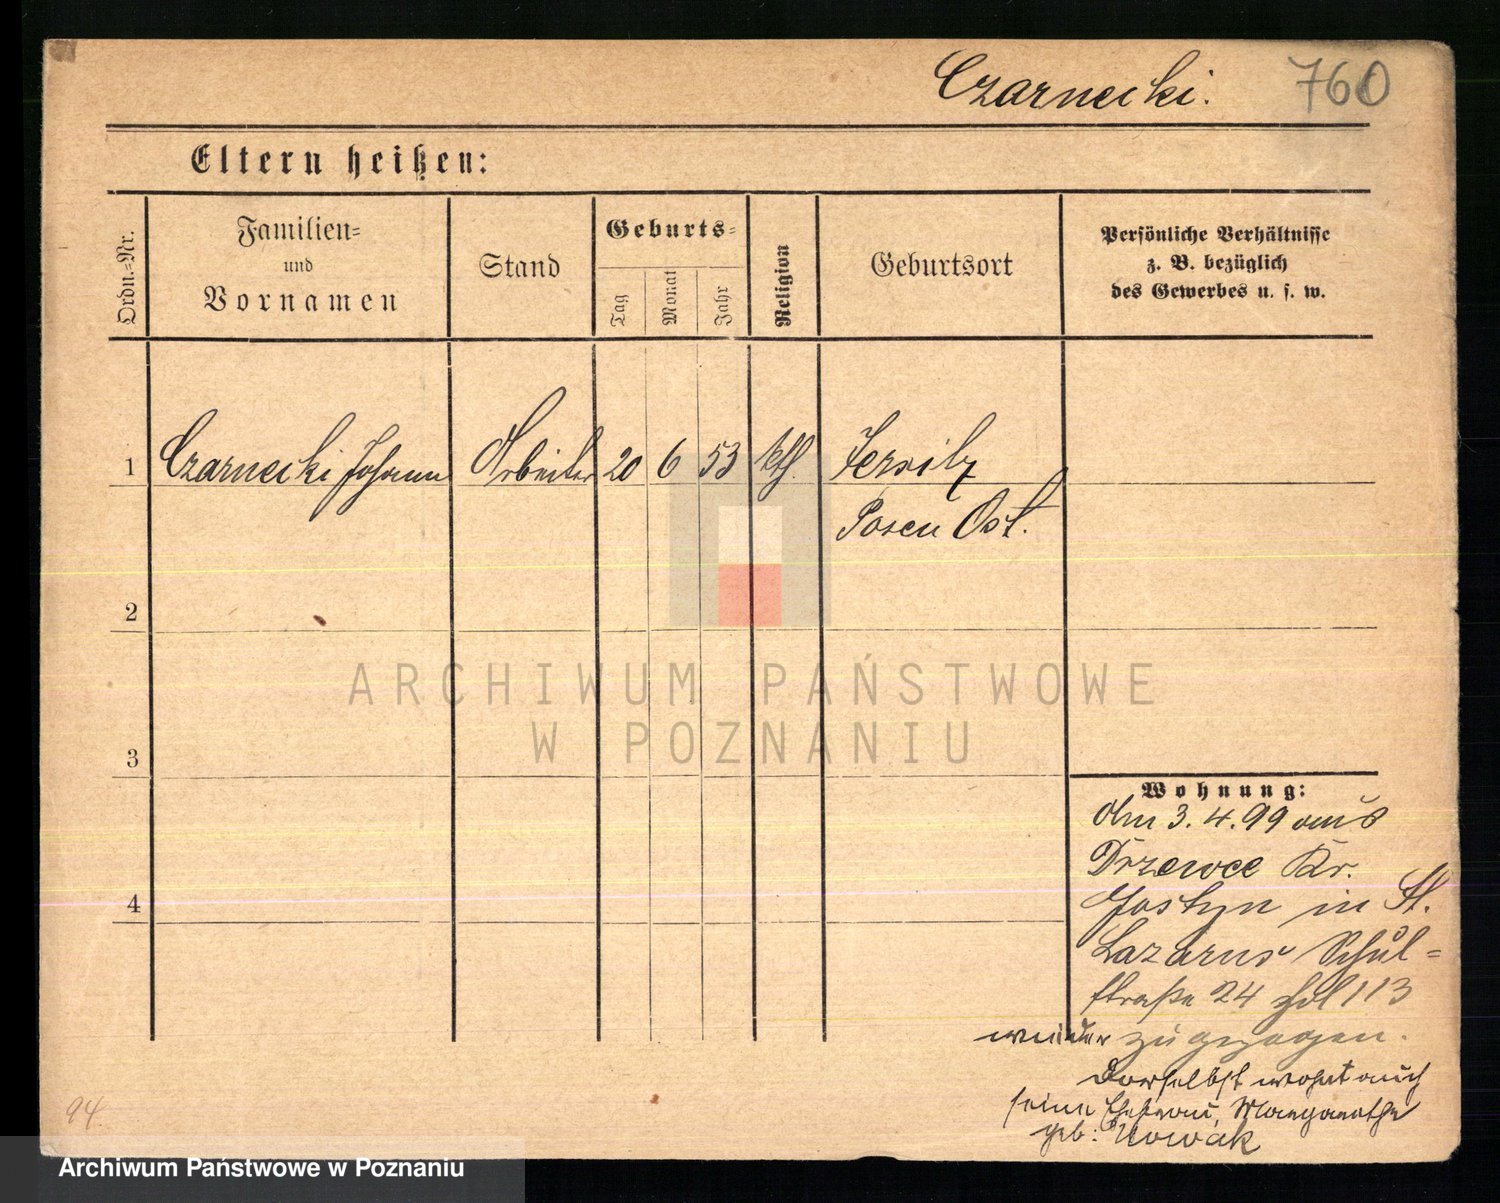 Czarnecki. 760
Eltern heißen:
Ordn.-Nr.
Familien-
und
Vornamen
Stand
Geburts-
Tag
Monat
Jahr
Religion
Geburtsort
Persönliche Verhältnisse
z. B. bezüglich
des Gewerbes u. s. w.
1 Czarnecki Johann Arbeiter 20 6 53 kth. Jersitz
Posen Ost.
2
3
4
Wohnung:
Am 3. 4. 99 aus
Drzewce Kr.
Gostyn in St.
Lazarus Schul-
straße 24 113
wieder zugezogen.
Daselbst wohnt auch
seine Ehefrau Margarethe
geb: Nowak
94
ARCHIWUM PAŃSTWOWE
W POZNANIU
Archiwum Państwowe w Poznaniu